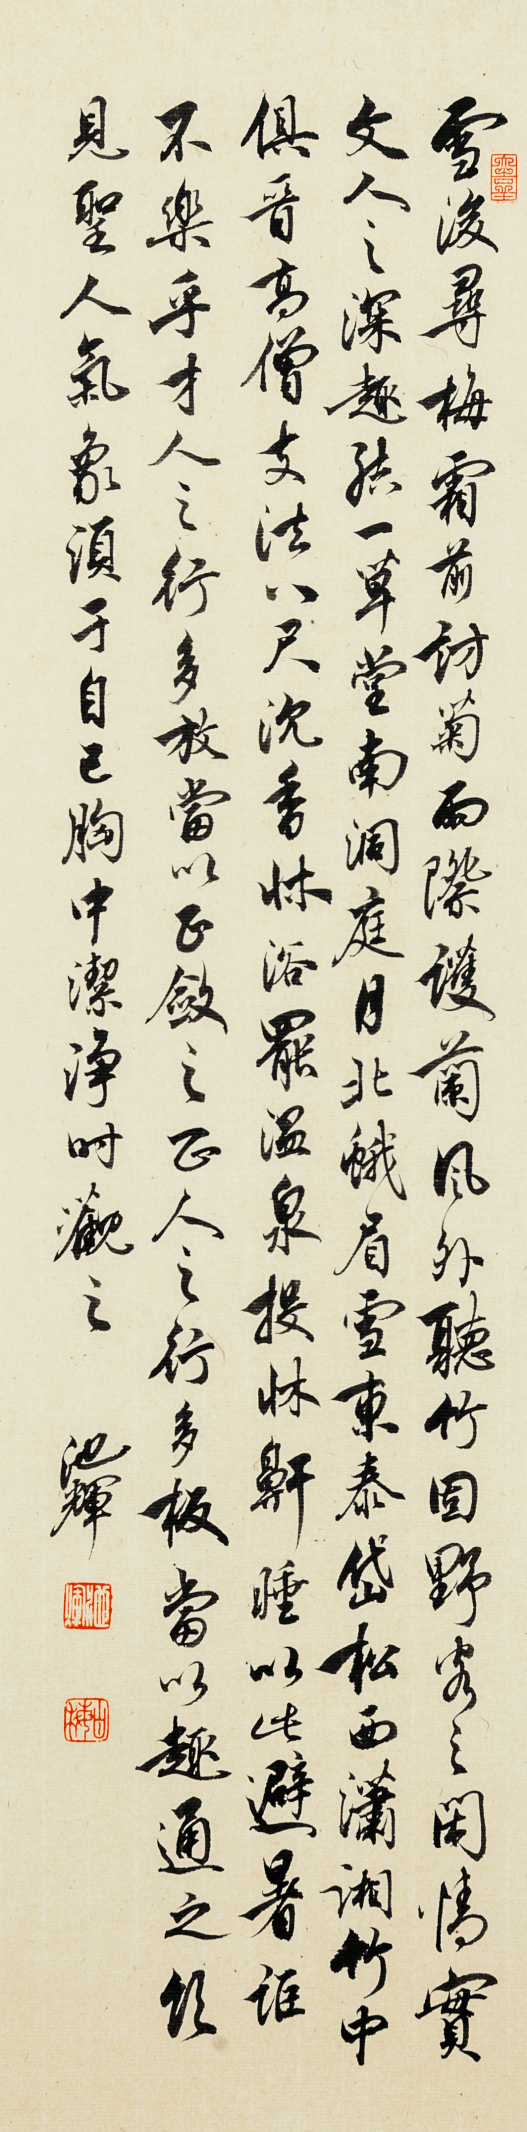 雪後尋梅霜前訪菊雨際護蘭風外聽竹固野客之閑情實
文人之深趣結一草堂南洞庭月北蛾眉雪東泰岱松西瀟湘竹中
俱晉高僧支法八尺沉香牀浴罷溫泉投牀鼾睡以此避暑詎
不樂乎才人之行多放當以正斂之正人之行多板當以趣通之欲
見聖人氣象須于自己胸中潔淨時觀之
池輝
池輝